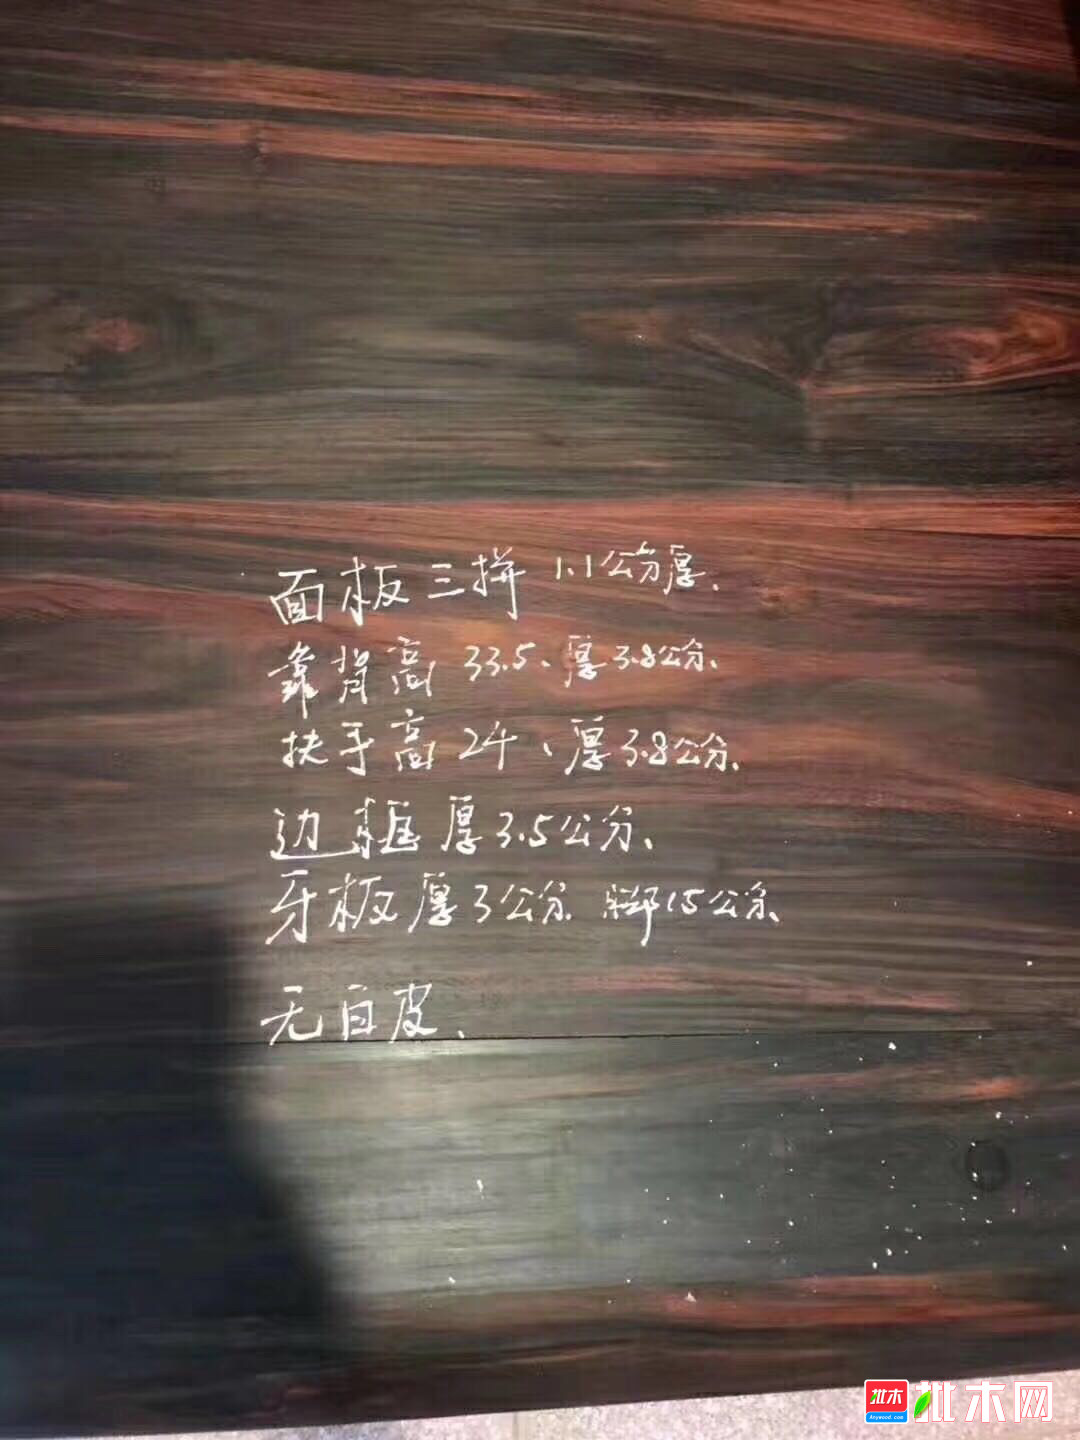 面板三拼 1.1公分厚、
靠背高 33.5、厚3.8公分、
扶手高 24、厚3.8公分、
边框厚3.5公分、
牙板厚3公分 脚15公分、
无白皮、
批木 批木网
Anywood.com